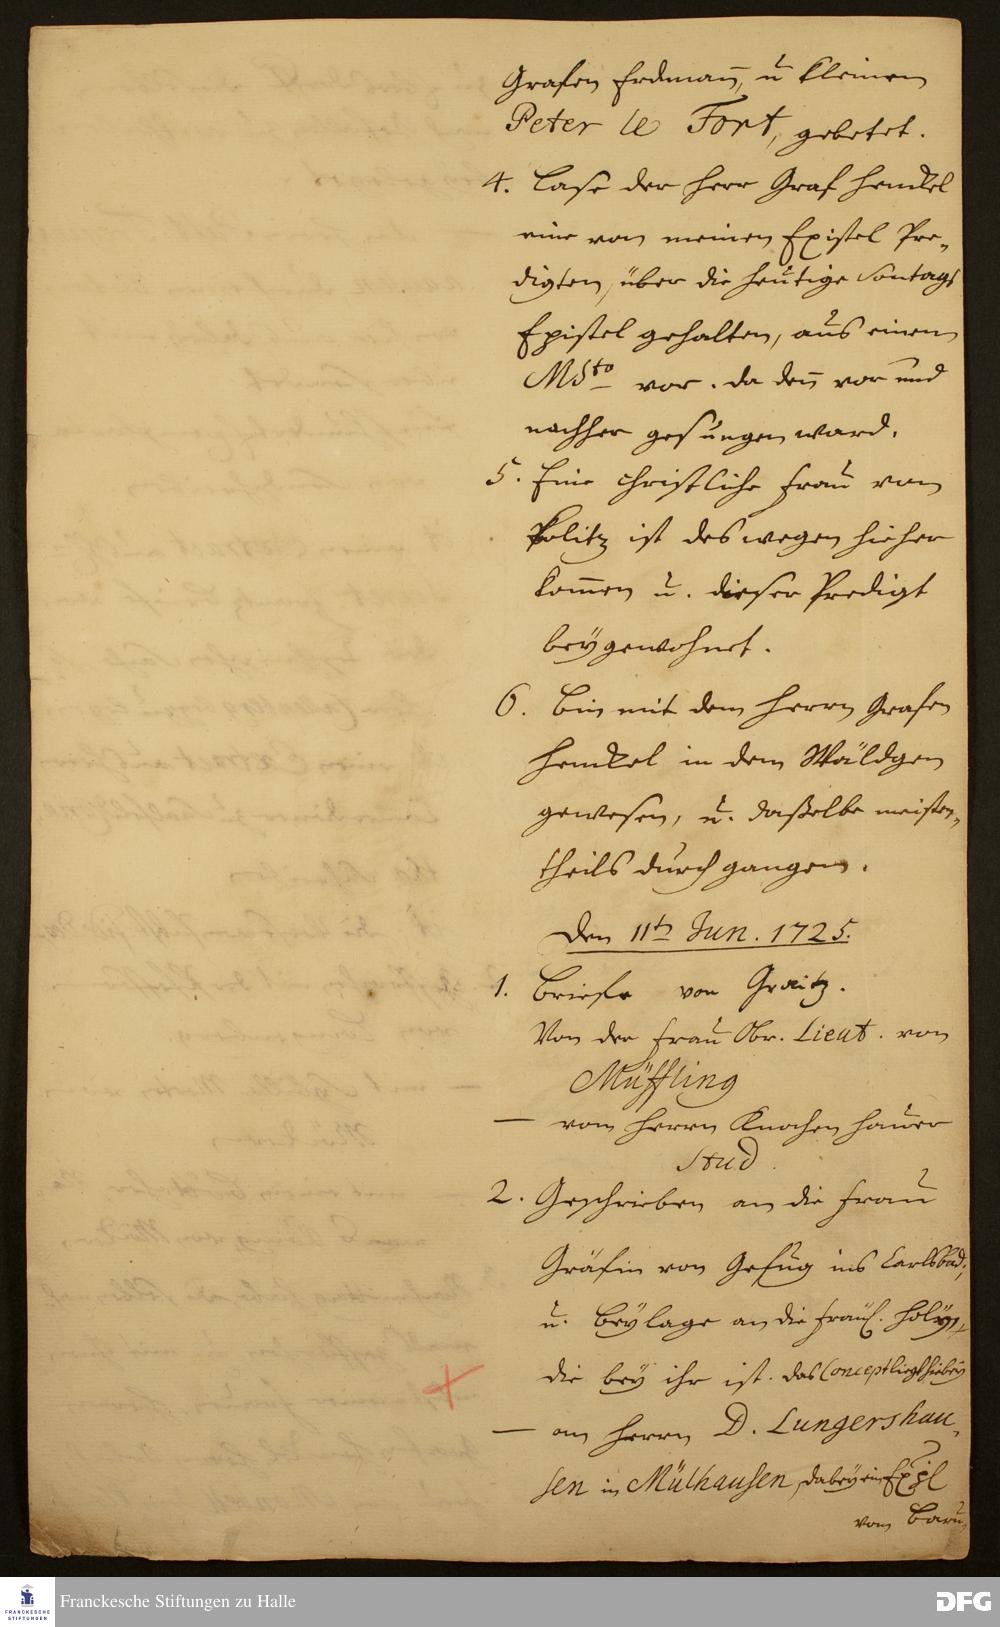 Grafen Erdmañ, u kleinen
Peter le Fort, gebetet.
4. Lase der Herr Graf Henckel
eine von meinen Epistel Pre-
digten, über die heutige Sontags
Epistel gehalten, aus einem
MSto vor. da deñ vor und
nachher gesungen ward.
5. Eine christliche Frau von
Politz ist deswegen hieher
kom̄en u. dieser Predigt
beygewohnet.
6. Bin mit dem Herrn Grafen
Henckel in dem Wäldgen
gewesen, u. daßelbe meisten-
theils durchgangen.
Den 11ten Jun. 1725.
1. Briefe von Graitz.
Von der Frau Obr. Lieut. von
Müffling
— vom Herrn Knochenhauer
Stud.
2. Geschrieben an die Frau
Gräfin von Gefug ins Carlsbad,
u. Beylage an die Fräul.
die bey ihr ist. das Concept liegt hiebey
— an Herrn D. Lungershau-
sen in Mülhausen, dabey ein Expl
vom
Franckesche Stiftungen zu Halle
DFG
FRANCKESCHE
STIFTUNGEN